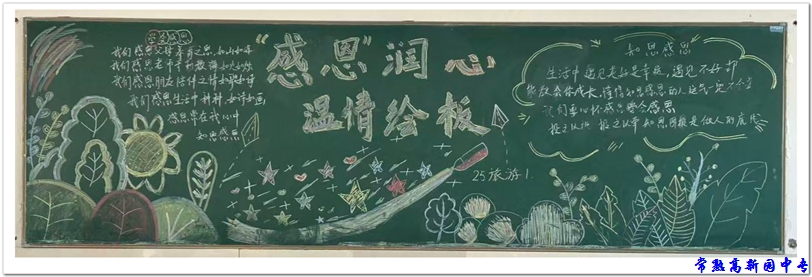 学会感恩
我们感恩父母养育之恩,如山如海
我们感恩老师辛勤教诲如灯如烛
我们感恩朋友陪伴之情如歌如诗
我们感恩生活中种种,如诗如画
感恩常在我心中
知恩感恩
“感恩”润心
温情绘板
25旅游1.
知恩感恩
生活中遇见美好是幸运,遇见不好却
你教会你成长,懂得知恩感恩的人运气一定不会差
我们要心怀感恩学会感恩
投之以桃 报之以李 知恩图报是做人的底线
常熟高新园中专